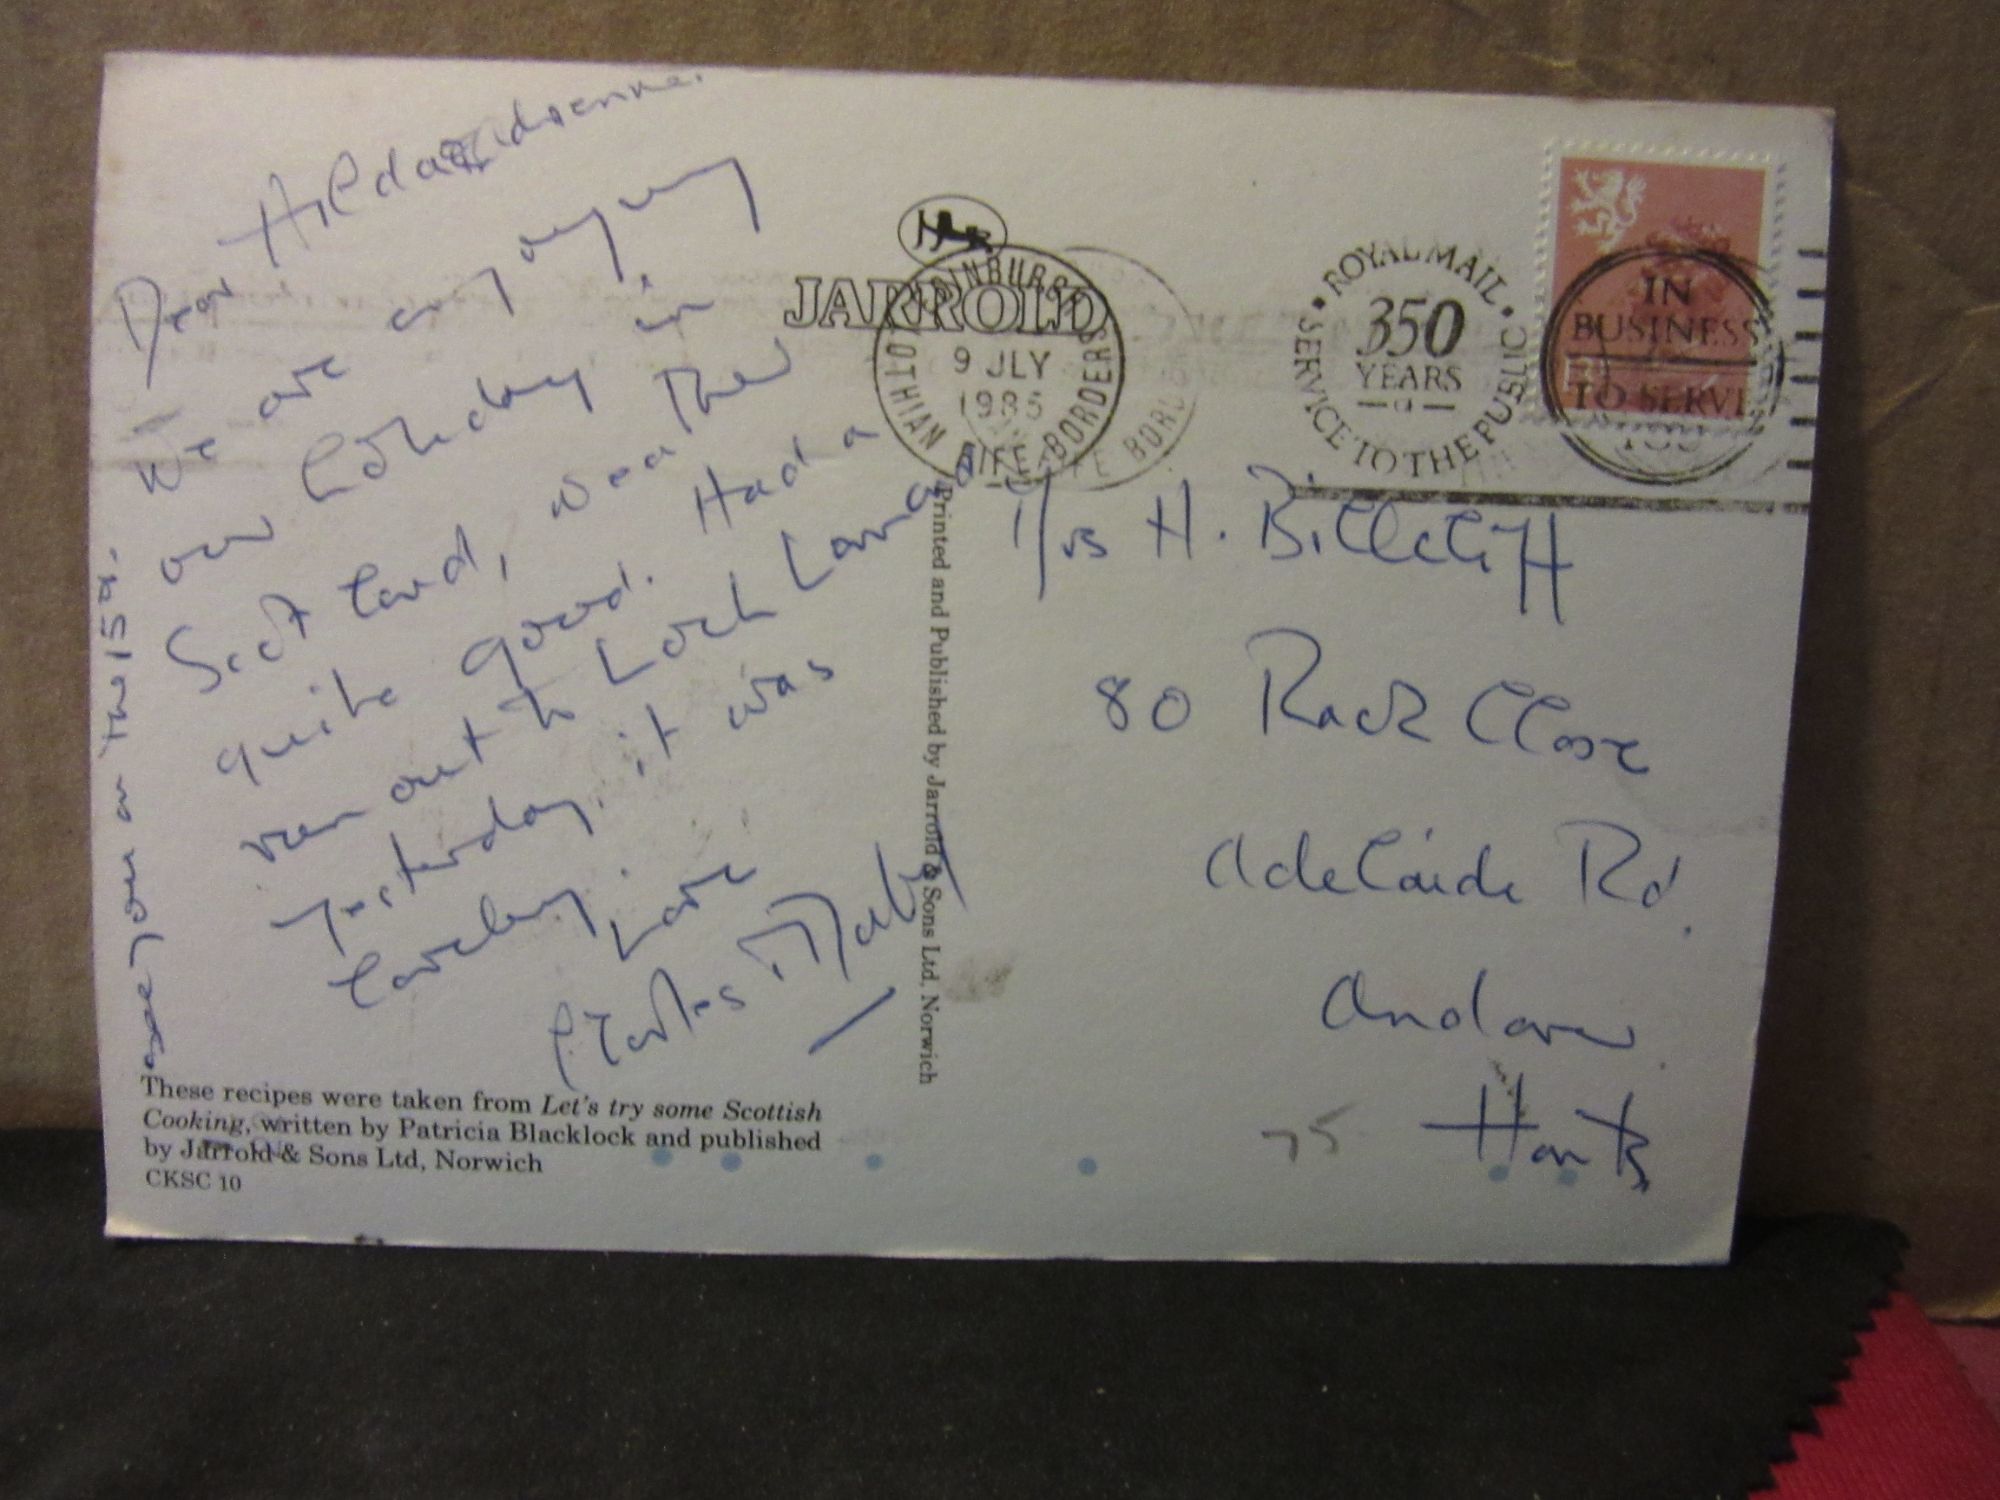 Dear Hilda
We are enjoying
our Holiday in
Scotland, weather
quite good. Had a
run out to Loch
yesterday, it was
lovely.
Love
Charles
see you on the 15th.
These recipes were taken from Let's try some Scottish
Cooking, written by Patricia Blacklock and published
by Jarrold & Sons Ltd, Norwich
CKSC 10
JARROLD
Printed and Published by Jarrold & Sons Ltd, Norwich
EDINBURGH
LOTHIAN FIFE & BORDERS
9 JLY
1985
ROYAL MAIL
350
YEARS
SERVICE TO THE PUBLIC
IN
BUSINESS
TO SERVE
YOU
Mrs H. Billcliff
80 Rack Close
Adelaide Rd.
Andover
Hants
75